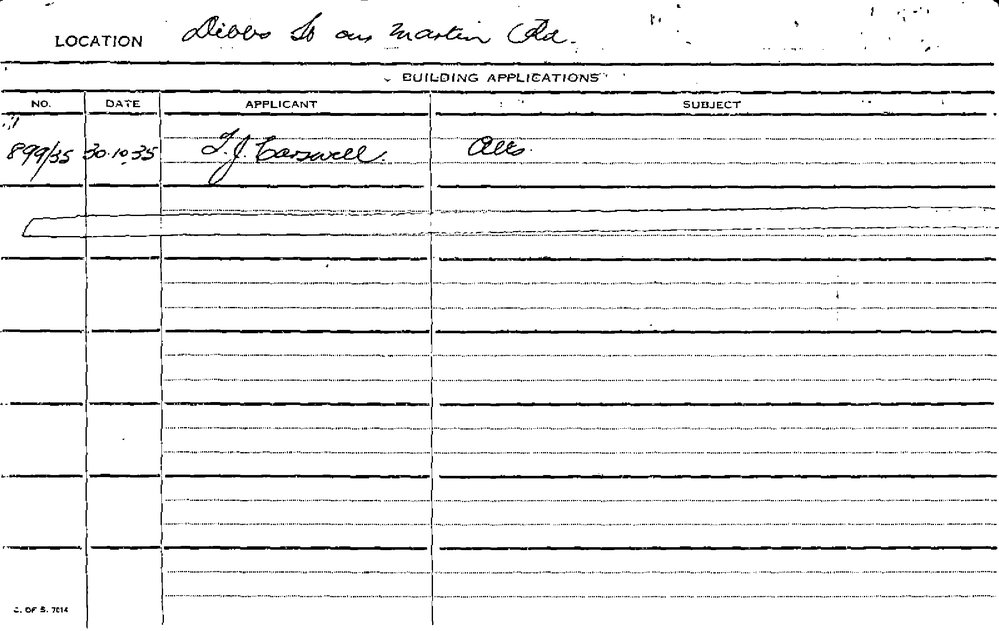 LOCATION Dibbs St ans Martin Rd.
BUILDING APPLICATIONS
NO. DATE APPLICANT SUBJECT
899/35 30.10.35 T.J. Carswell. Alts.
C. OF S. 7014